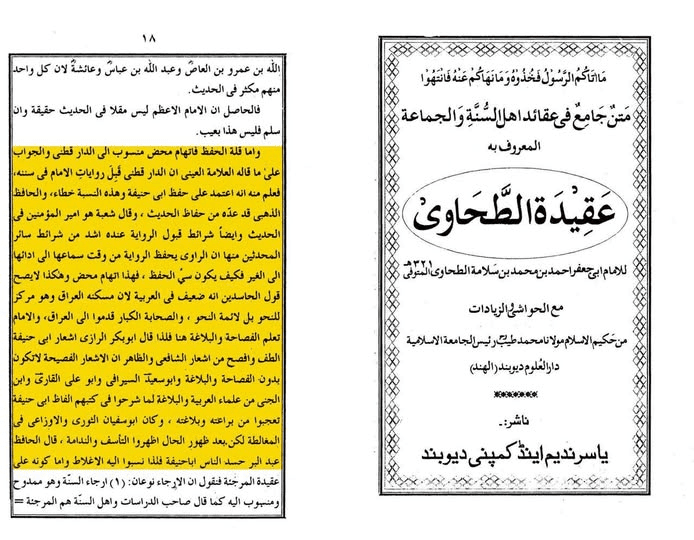 ١٨
الله بن عمرو بن العاصؓ وعبد الله بن عباسؓ وعائشةؓ لان كل واحد
منهم مكثر فى الحديث.
فالحاصل ان الامام الاعظم ليس مقلا فى الحديث حقيقة وان
سلم فليس هذا بعيب.
واما قلة الحفظ فاتهام محض منسوب الى الدار قطنى والجواب
علىٰ ما قاله العلامة العينى ان الدار قطنى قَبِلَ روايات الامام فى سننه،
فعلم منه انه اعتمد على حفظ ابى حنيفة وهذه النسبة خطاء، والحافظ
الذهبى قد عدّه من حفاظ الحديث ، وقال شعبة هو امير المؤمنين فى
الحديث وايضاً شرائط قبول الرواية عنده اشد من شرائط سائر
المحدثين منها ان الراوى يحفظ الرواية من وقت سماعها الى ادائها
الى الغير فكيف يكون سئ الحفظ ، فهذا اتهام محض وهكذا لايصح
قول الحاسدين انه ضعيف فى العربية لان مسكنه العراق وهو مركز
للنحو بل لائمة النحو ، والصحابة الكبار قدموا الى العراق، والامام
تعلم الفصاحة والبلاغة هنا فلذا قال ابوبكر الرازى اشعار ابى حنيفة
الطف وافصح من اشعار الشافعى والظاهر ان الاشعار الفصيحة لاتكون
بدون الفصاحة والبلاغة وابوسعيد السيرافى وابو على القارى وابن
الجنى من علماء العربية والبلاغة لما شرحوا فى كتبهم الفاظ ابى حنيفة
تعجبوا من براعته وبلاغته ، وكان ابوسفيان الثورى والاوزاعى فى
المغالطة لكن بعد ظهور الحال اظهروا التأسف والندامة ، قال الحافظ
عبد البر حسد الناس اباحنيفة فلذا نسبوا اليه الاغلاط واما كونه على
عقيدة المرجئة فنقول ان الارجاء نوعان: (١) ارجاء السنّة وهو ممدوح
ومنسوب اليه كما قال صاحب الدراسات واهل السنّة هم المرجئة =
مَا اٰتَاكُمُ الرَّسُوْلُ فَخُذُوْهُ وَمَا نَهَاكُمْ عَنْهُ فَانْتَهُوْا
مَتنٌ جَامِعٌ فى عقائد اهل السُّنَّةِ وَالجماعة
المعروف به
عَقِيْدَةُ الطَّحَاوِىْ
للامام ابى جعفر احمد بن محمد بن سَلامة الطحاوى المتوفى ٣٢١هـ
مع الحواشى والزيادات
من حَكيم الاسلام مولانا محمد طيب رئيس الجامعة الاسلامية
دارالعُلوم ديوبند (الهند)
ناشر:۔
ياسر نديم اينڈ كمپنى ديوبند